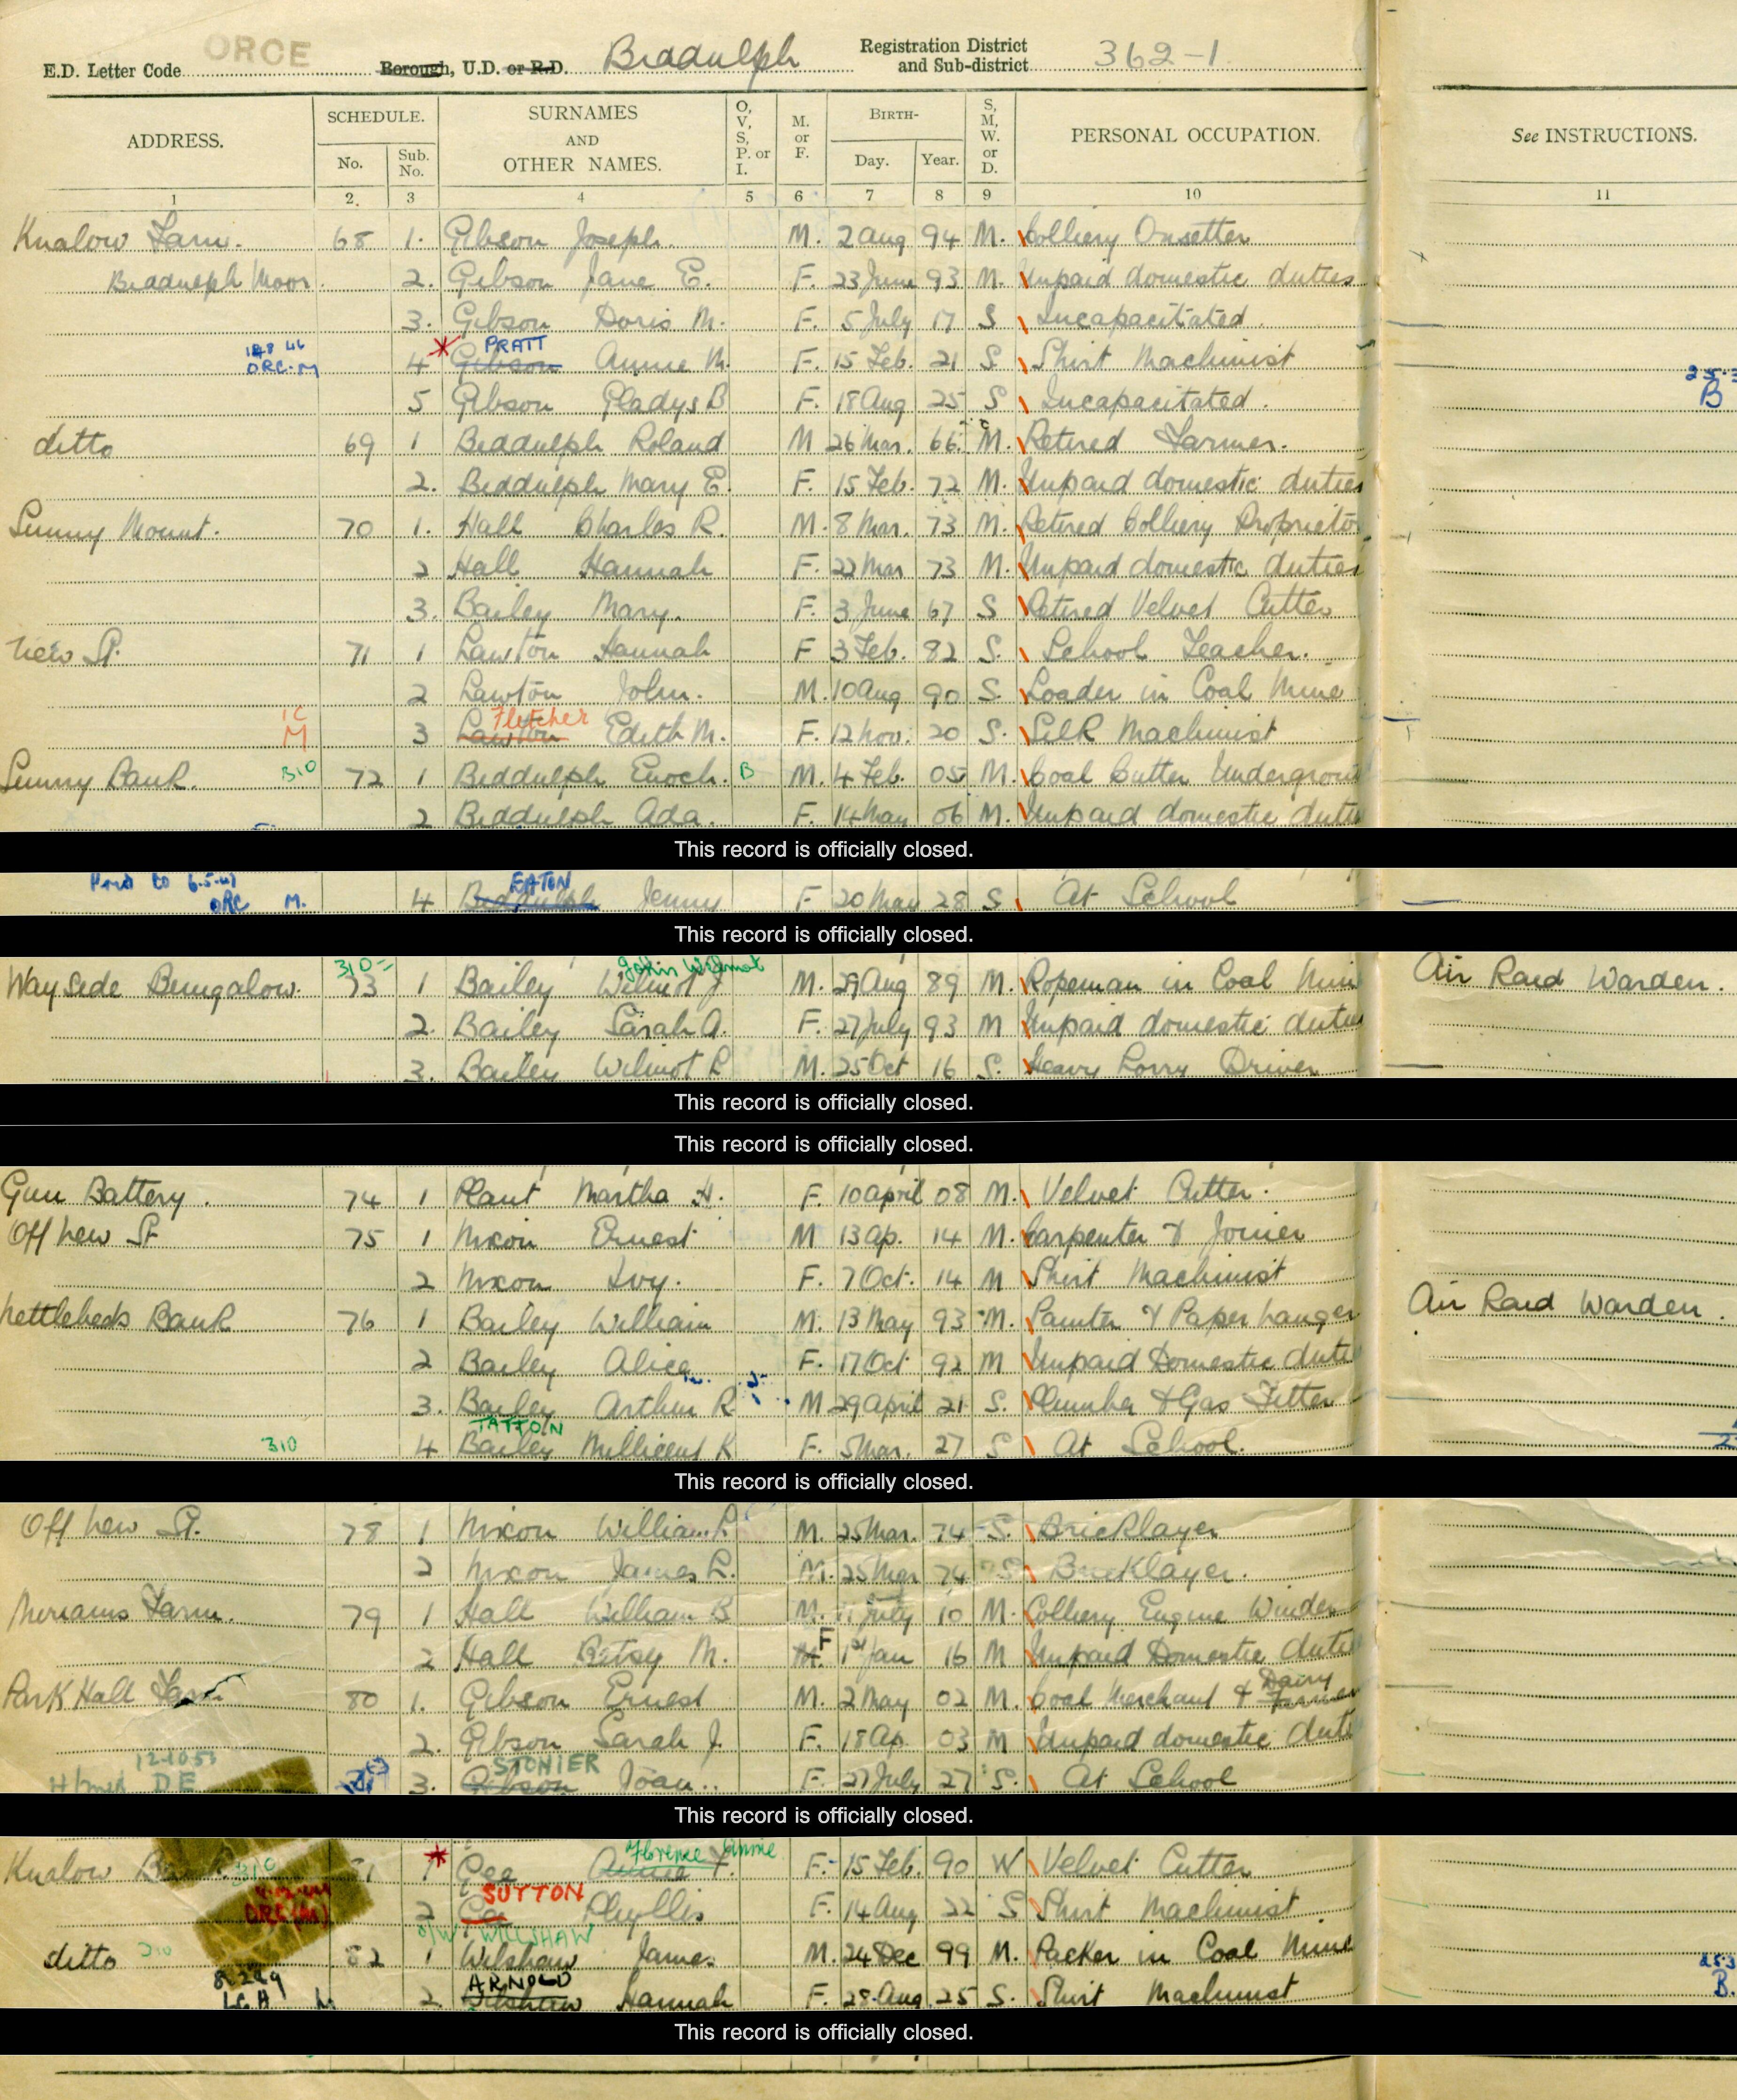 ORCE
E.D. Letter Code Borough, U.D. or R.D. Biddulph Registration District and Sub-district 362-1
ADDRESS. SCHEDULE. No. Sub. No. SURNAMES AND OTHER NAMES. O, V, S, P. or I. M. or F. BIRTH- Day. Year. S, M, W. or D. PERSONAL OCCUPATION. See INSTRUCTIONS.
1 2. 3 4 5 6 7 8 9 10 11
Knalow Farm. 68 1. Gibson Joseph. M. 2 Aug 94 M. Colliery Onsetter
Biddulph Moor. 2. Gibson Jane E. F. 23 June 93 M. Unpaid domestic duties
3. Gibson Doris M. F. 5 July 17 S Incapacitated.
ORC.M 4 Gibson PRATT Annie M. F. 15 Feb. 21 S Shirt Machinist
5 Gibson Gladys B F. 18 Aug 25 S Incapacitated. B
ditto 69 1 Biddulph Roland M 26 Mar. 66 M. Retired Farmer.
2. Biddulph Mary E. F. 15 Feb. 72 M. Unpaid domestic duties
Sunny Mount. 70 1. Hall Charles R. M. 8 Mar. 73 M. Retired Colliery Proprieto
2 Hall Hannah F. 22 Mar 73 M. Unpaid domestic duties
3. Bailey Mary. F. 3 June 67 S Retired Velvet Cutter
New St. 71 1 Lawton Hannah F 3 Feb. 82 S. School Teacher.
2 Lawton John. M. 10 Aug 90 S. Loader in Coal Mine
M 3 Lawton Fletcher Edith M. F. 12 Nov. 20 S. Silk Machinist
Sunny Bank. 310 72 1 Biddulph Enoch. B M. 4 Feb. 05 M. Coal Cutter Undergroun
2 Biddulph Ada. F. 14 May 06 M. Unpaid domestic duti
This record is officially closed.
ORC M. 4 Biddulph EATON Jenny F 20 May 28 S At School
This record is officially closed.
Wayside Bungalow. 310 73 1 Bailey Wilmot J John Wilmot M. 29 Aug 89 M. Ropeman in Coal Min Air Raid Warden.
2. Bailey Sarah A. F. 27 July 93 M Unpaid domestic duties
3. Bailey Wilmot L M. 25 Oct 16 S. Heavy Lorry Driver
This record is officially closed.
This record is officially closed.
Gun Battery. 74 1 Plant Martha H. F. 10 April 08 M. Velvet Cutter.
Off New St 75 1 Nixon Ernest M 13 Ap. 14 M. Carpenter & Joiner
2 Nixon Ivy. F. 7 Oct. 14 M Shirt Machinist
Nettlebeds Bank 76 1 Bailey William M. 13 May 93 M. Painter & Paper hanger Air Raid Warden.
2 Bailey Alice F. 17 Oct 92 M Unpaid Domestic duti
3. Bailey Arthur R M 29 April 21 S. Plumber & Gas Fitter
310 4 Bailey TATTON Millicent K F. 5 Mar. 27 S At School.
This record is officially closed.
Off New St. 78 1 Nixon William M. 25 Mar. 74 S. Bricklayer
2 Nixon James L. M. 25 Mar 74 S Bricklayer.
Merriams Farm. 79 1 Hall William B M. July 10 M. Colliery Engine Winder
2 Hall Betsy M. F 1st Jan 16 M Unpaid Domestic duti
Park Hall Farm 80 1. Gibson Ernest M. 2 May 02 M. Coal Merchant & Dairy Farmer
2. Gibson Sarah J. F. 18 Ap. 03 M Unpaid domestic duti
12.10.53 DE 3. Gibson STONIER Joan.. F. 27 July 27 S. At School
This record is officially closed.
Knalow 310 81 1 Gee Annie F. Florence Annie F. 15 Feb. 90 W Velvet Cutter
2 Gee SUTTON Phyllis F. 14 Aug 22 S Shirt Machinist
ditto 310 82 1 Wilshaw WILLSHAW James M. 24 Dec 99 M. Packer in Coal Mine
2. Wilshaw ARNOLD Hannah F. 28 Aug 25 S. Shirt Machinist B.
This record is officially closed.